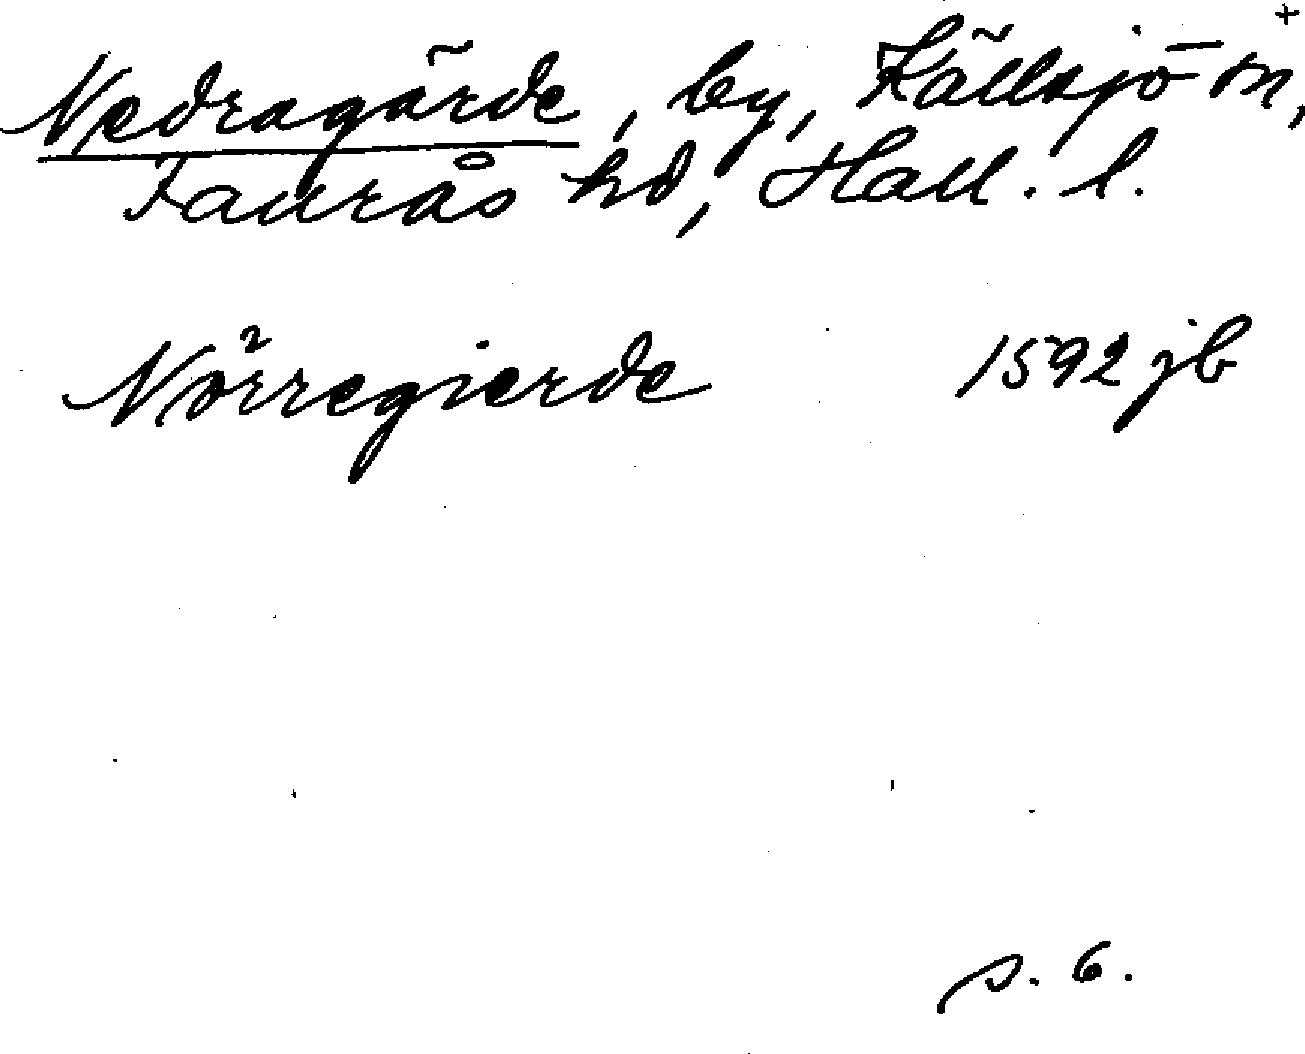 +
Nedragärde, by, Källsjö sn,
Faurås hd, Hall. l.
Nörregierde 1592 jb
s. 6.